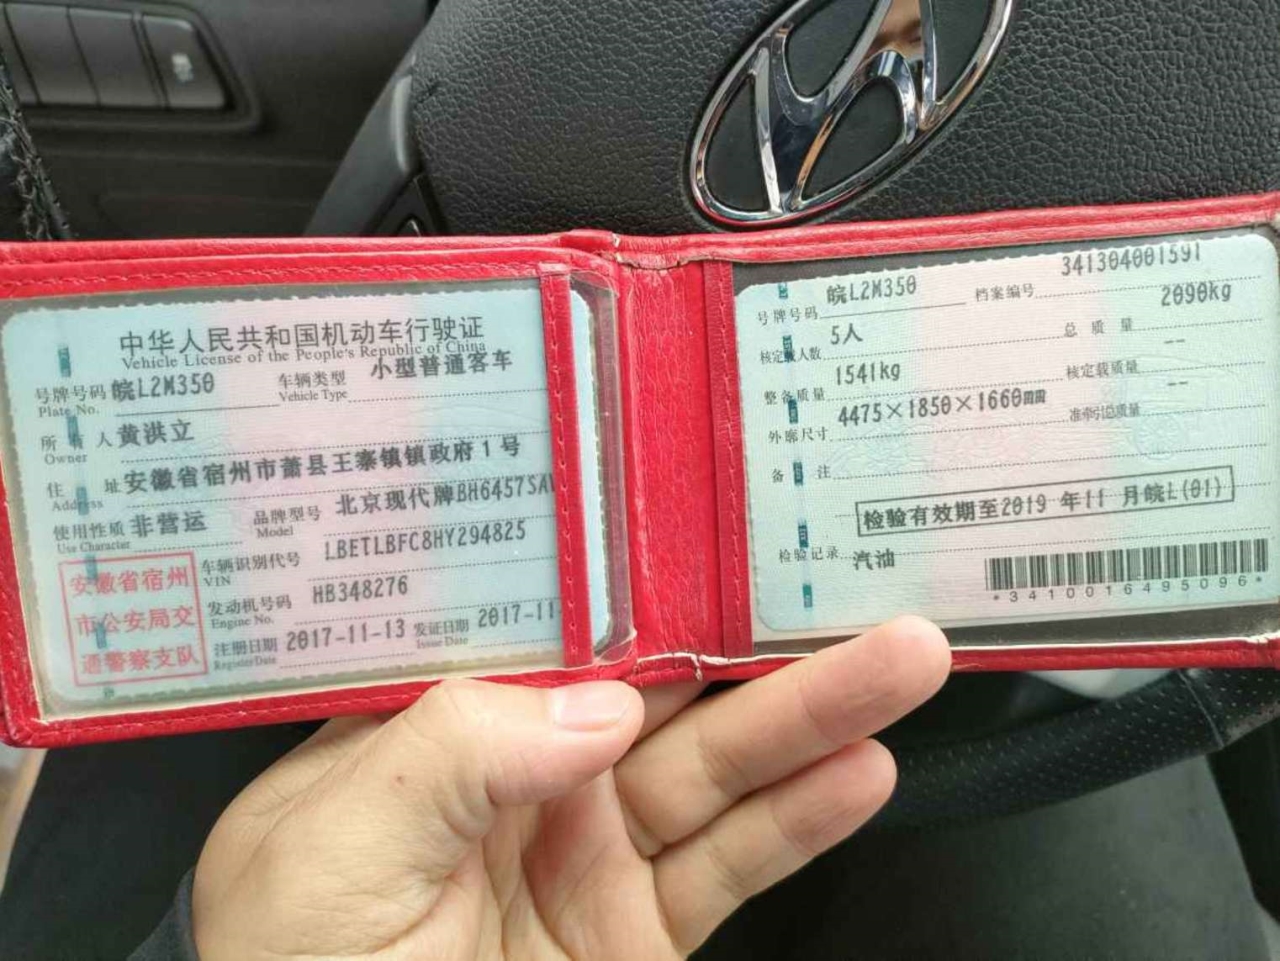 中华人民共和国机动车行驶证
Vehicle License of the People's Republic of China
号牌号码 皖L2M350 车辆类型 小型普通客车
Plate No. Vehicle Type
所有人 黄洪立
Owner
住址 安徽省宿州市萧县王寨镇镇政府1号
Address
使用性质 非营运 品牌型号 北京现代牌BH6457SAV
Use Character Model
车辆识别代号 LBETLBFC8HY294825
VIN
发动机号码 HB348276
Engine No.
注册日期 2017-11-13 发证日期 2017-11
Register Date Issue Date
安徽省宿州
市公安局交
通警察支队
号牌号码 皖L2M350 档案编号 341304001591
核定载人数 5人 总质量 2090kg
整备质量 1541kg 核定载质量 --
外廓尺寸 4475×1850×1660mm 准牵引总质量 --
备注
检验有效期至2019年11月皖L(01)
检验记录 汽油
*3410016495096*